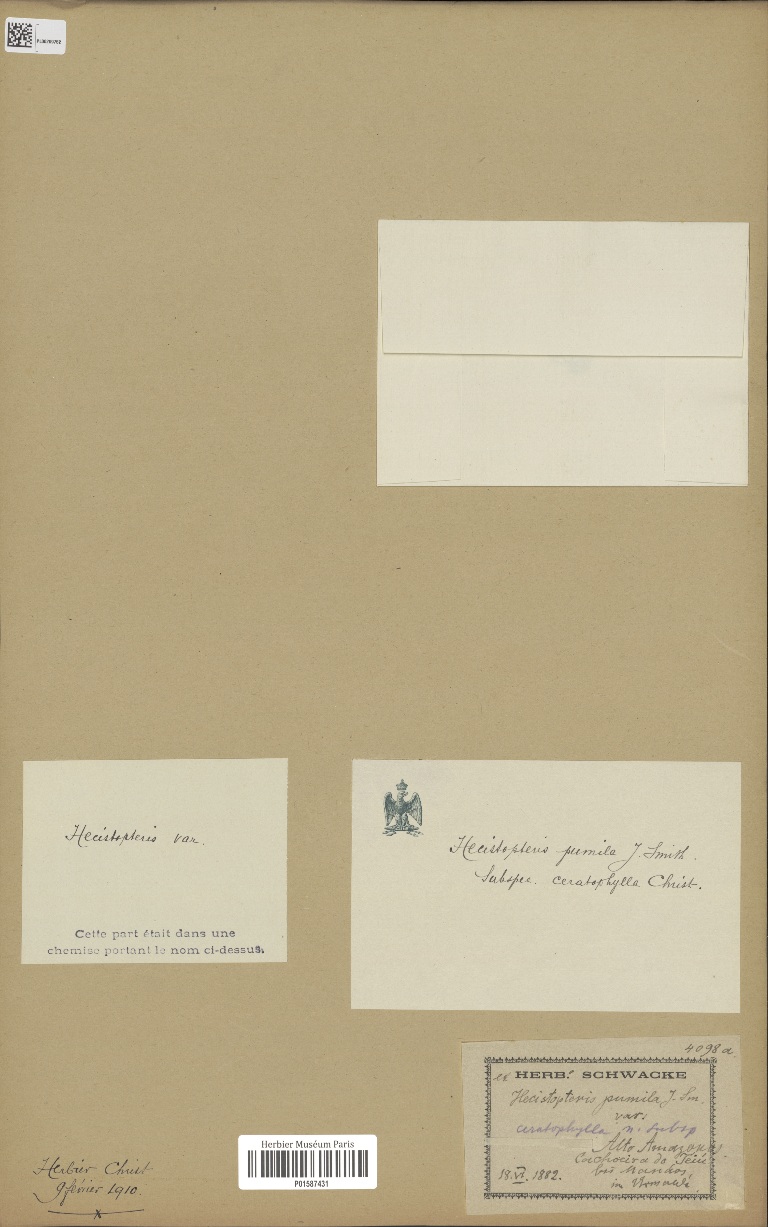 Hecistopteris var.
Cette part était dans une
chemise portant le nom ci-dessus.
Hecistopteris pumila J. Smith.
Subspec. ceratophylla Christ.
4098a
ex HERB. SCHWACKE
Hecistopteris pumila J. Sm.
var.
ceratophylla n. subsp
Alto Amazonas
Cachoeira do
bei Manáos
18.VI.1882.
in
Herbier Christ
9 février 1910.
Herbier Muséum Paris
P01587431